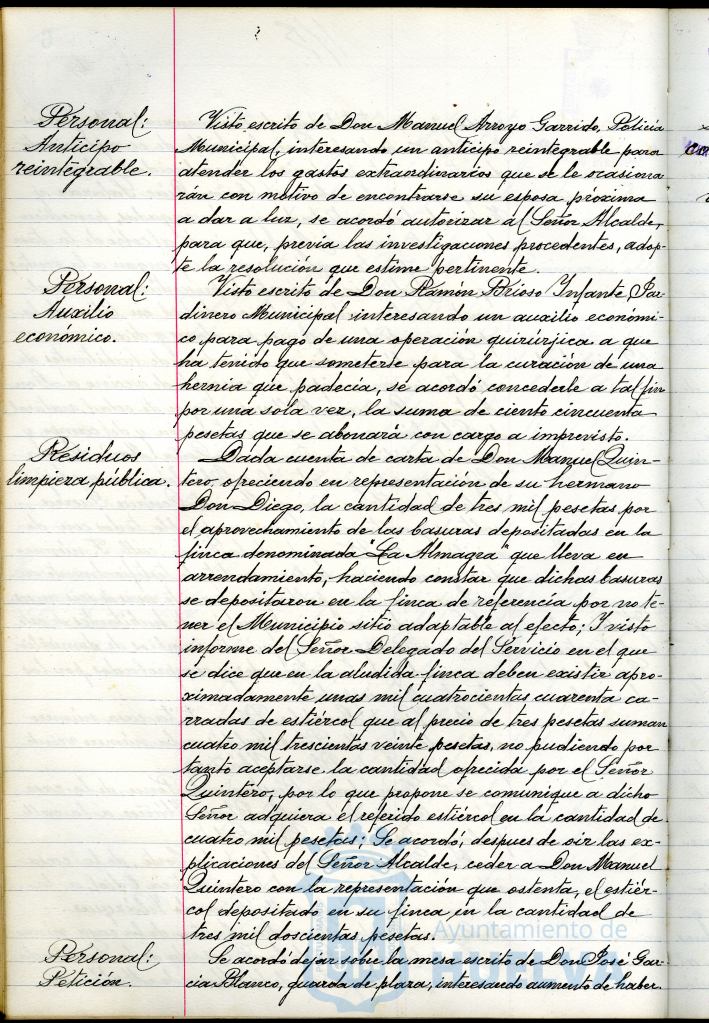 Personal:
Anticipo
reintegrable.
Visto escrito de Don Manuel Arroyo Garrido, Policia
Municipal, interesando un anticipo reintegrable para
atender los gastos extraordinarios que se le ocasiona
rán con motivo de encontrarse su esposa próxima
a dar a luz, se acordó autorizar al Señor Alcalde,
para que, previa las investigaciones procedentes, adop-
te la resolución que estime pertinente.
Personal:
Auxilio
económico.
Visto escrito de Don Ramón Brioso Infante, Jar-
dinero Municipal interesando un auxilio económi-
co para pago de una operación quirúrjica a que
ha tenido que someterse para la curación de una
hernia que padecía, se acordó concederle a tal fin
por una sola vez, la suma de ciento cincuenta
pesetas que se abonará con cargo a imprevisto.
Residuos
limpieza pública.
Dada cuenta de carta de Don Manuel Quin-
tero, ofreciendo en representación de su hermano
Don Diego, la cantidad de tres mil pesetas por
el aprovechamiento de las basuras depositadas en la
finca denominada "La Almagra" que lleva en
arrendamiento, haciendo constar que dichas basuras
se depositaron en la finca de referencia por no te-
ner el Municipio sitio adaptable al efecto; Y visto
informe del Señor Delegado del Servicio en el que
se dice que en la aludida finca deben existir apro-
ximadamente unas mil cuatrocientas cuarenta ca-
rradas de estiércol que al precio de tres pesetas suman
cuatro mil trescientas veinte pesetas, no pudiendo por
tanto aceptarse la cantidad ofrecida por el Señor
Quintero, por lo que propone se comunique a dicho
Señor adquiera el referido estiércol en la cantidad de
cuatro mil pesetas; Se acordó, despues de oir las ex-
plicaciones del Señor Alcalde, ceder a Don Manuel
Quintero con la representación que ostenta, el estiér-
col depositado en su finca en la cantidad de
tres mil doscientas pesetas.
Personal:
Petición.
Se acordó dejar sobre la mesa escrito de Don José Gar-
cia Blanco, guarda de plaza, interesando aumento de haber.
Ayuntamiento de
Huelva